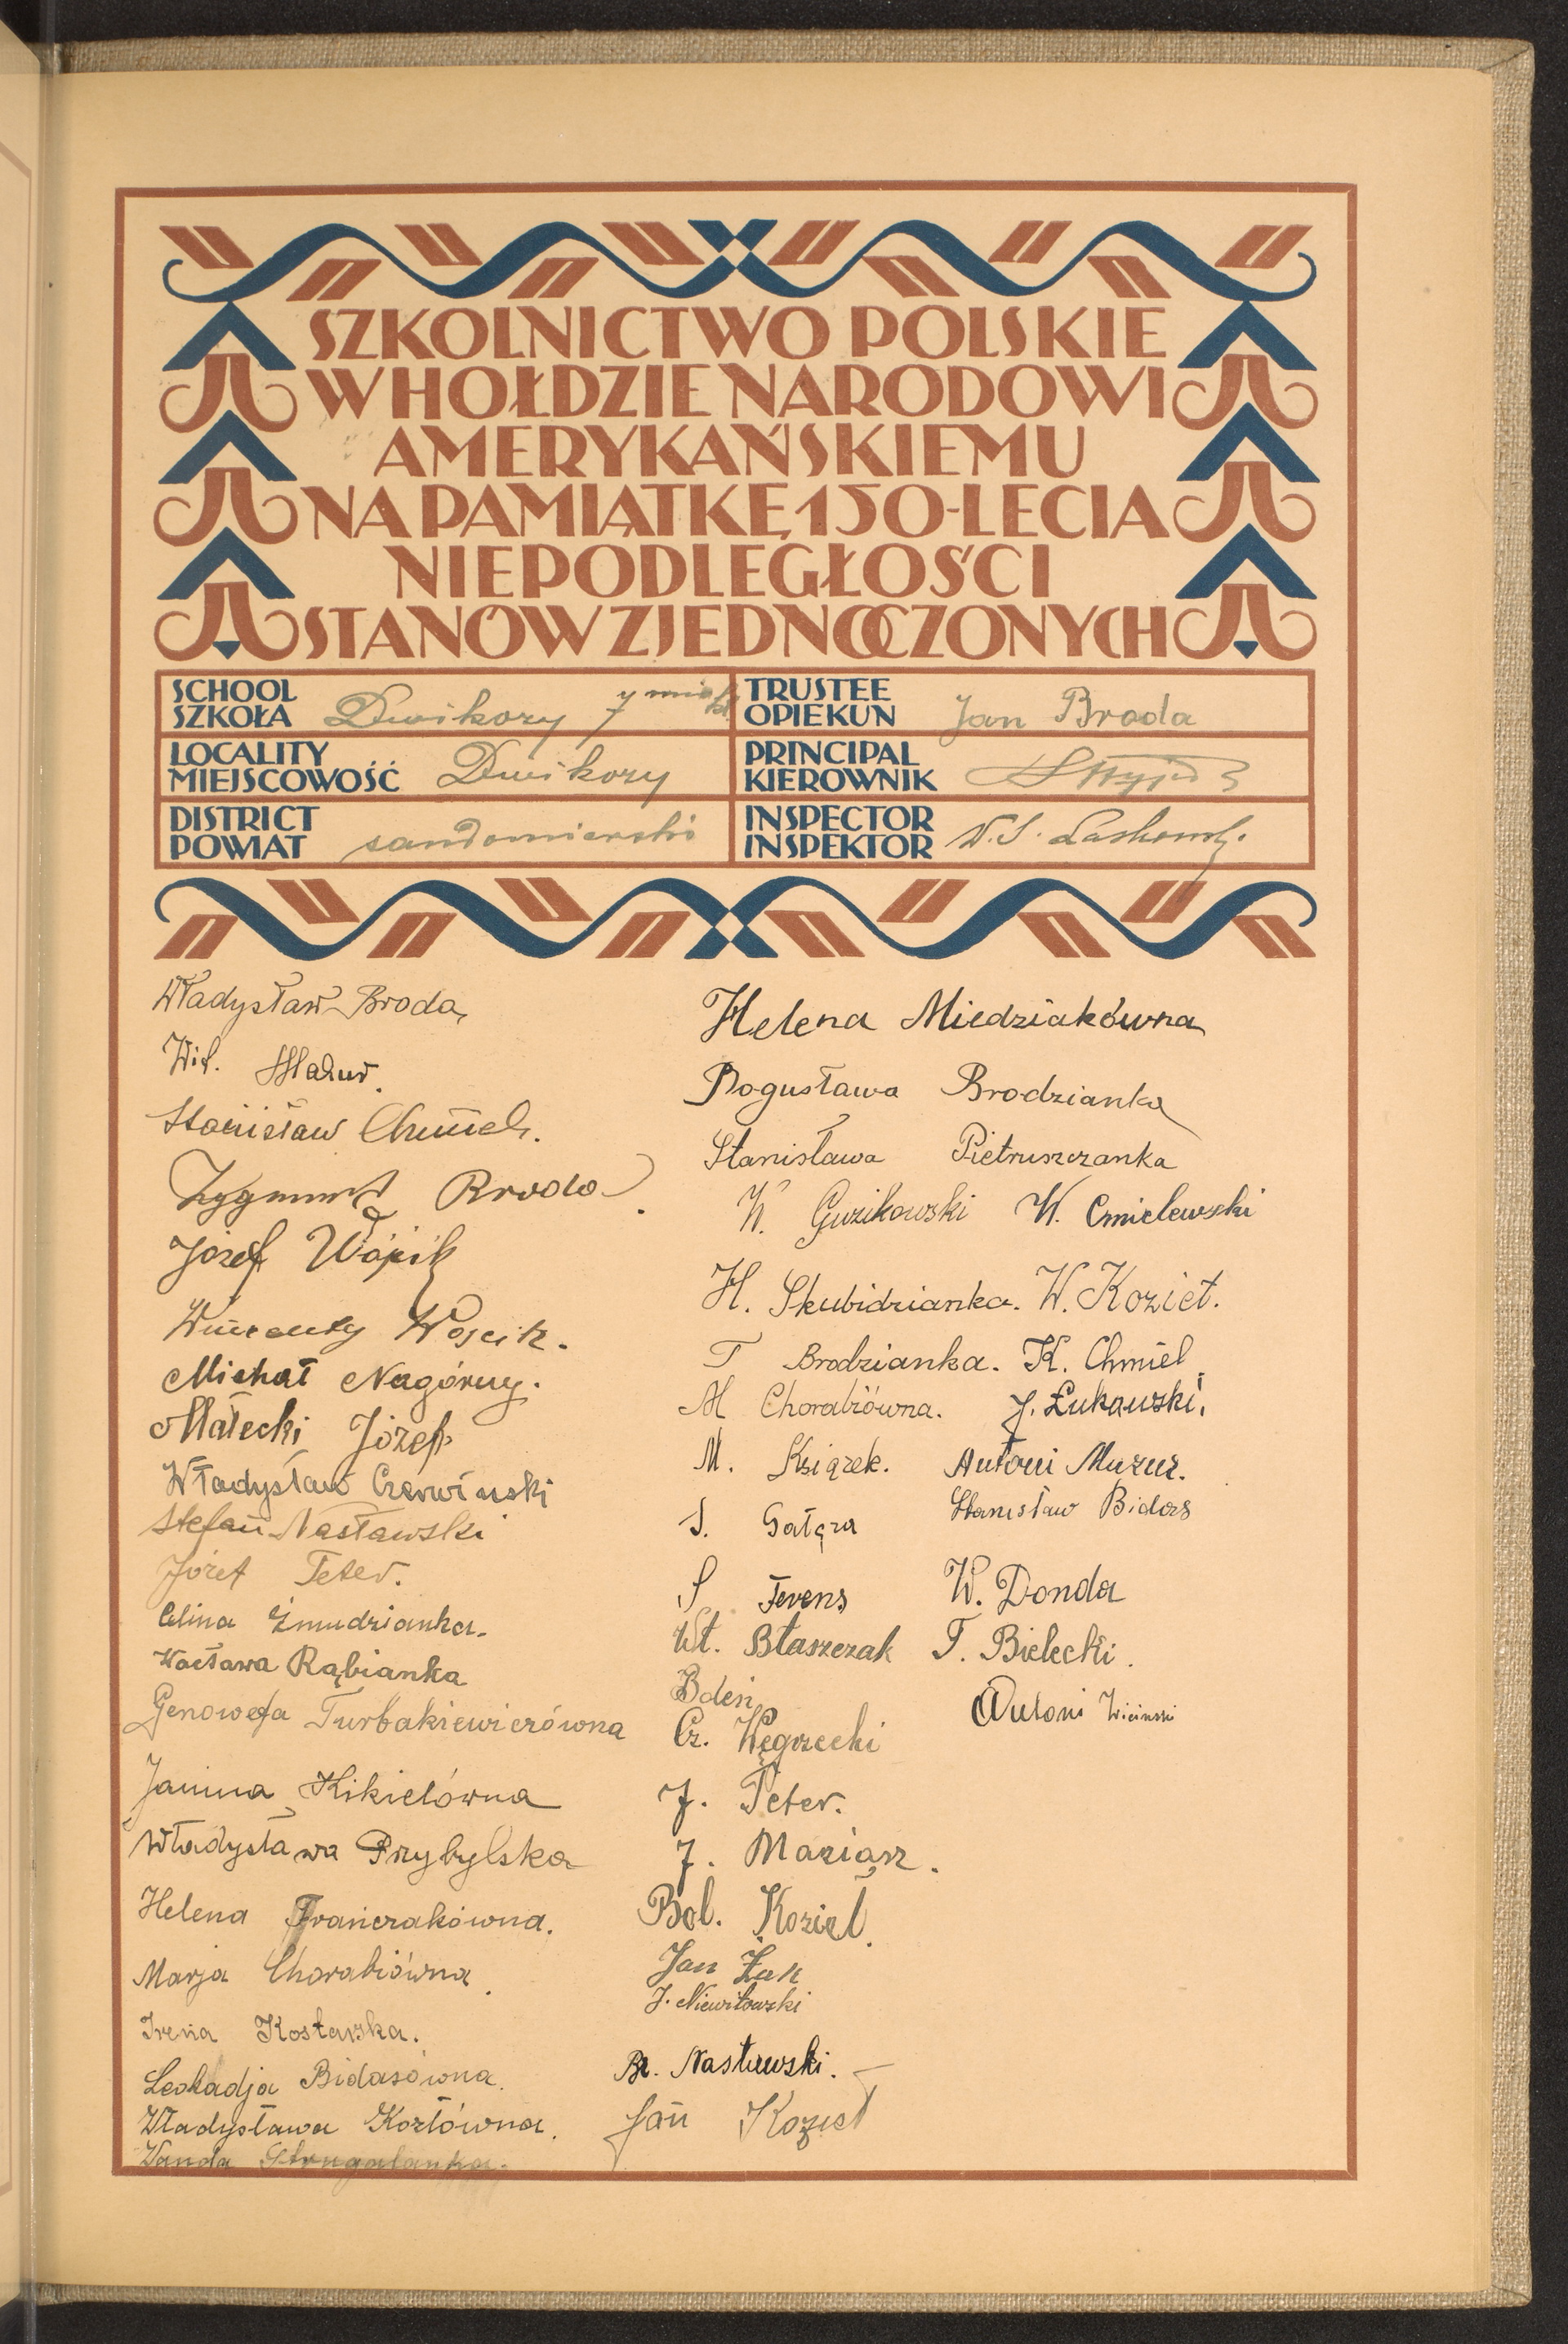 SZKOLNICTWO POLSKIE
W HOŁDZIE NARODOWI
AMERYKAŃSKIEMU
NA PAMIĄTKĘ 150-LECIA
NIEPODLEGŁOŚCI
STANÓW ZJEDNOCZONYCH
SCHOOL
SZKOŁA Dwikozy 7
TRUSTEE
OPIEKUN Jan Broda
LOCALITY
MIEJSCOWOŚĆ Dwikozy
PRINCIPAL
KIEROWNIK
DISTRICT
POWIAT sandomierski
INSPECTOR
INSPEKTOR W. S.
Władysław Broda
Wit. Mazur.
Stanisław Chmiel.
Zygmunt Broda.
Józef Wójcik
Wincenty Wójcik.
Michał Nagórny.
Małecki Józef
Władysław Czerwiński
Stefan Nasławski
Józef Teter.
Celina Żmudzianka.
Wacława Rąbianka
Genowefa Turbakiewiczówna
Janina Kikielówna
Władysława Przybylska
Helena Frańczakówna.
Marja Chorabiówna.
Irena Kosławska.
Leokadja Bidasówna.
Władysława Kozłówna.
Wanda Strugalanka.
Helena Miedziakówna
Bogusława Brodzianka
Stanisława Pietruszczanka
W. Guzikowski W. Cmielewski
H. Skubidzianka. W. Kozieł.
T Brodzianka. K. Chmiel
M Chorabiówna. J. Łukawski.
M. Książek. Antoni Mazur.
S. Gałęza Stanisław Bidas
S Ferens W. Donda
Wł. Błaszczak T. Bielecki.
Bdeń Antoni Wiciński
Cz. Węgrzecki
J. Teter.
J. Maziarz.
Bol. Kozieł.
Jan Żak
J. Niewitowski
Br. Nasławski.
Jan Kozieł